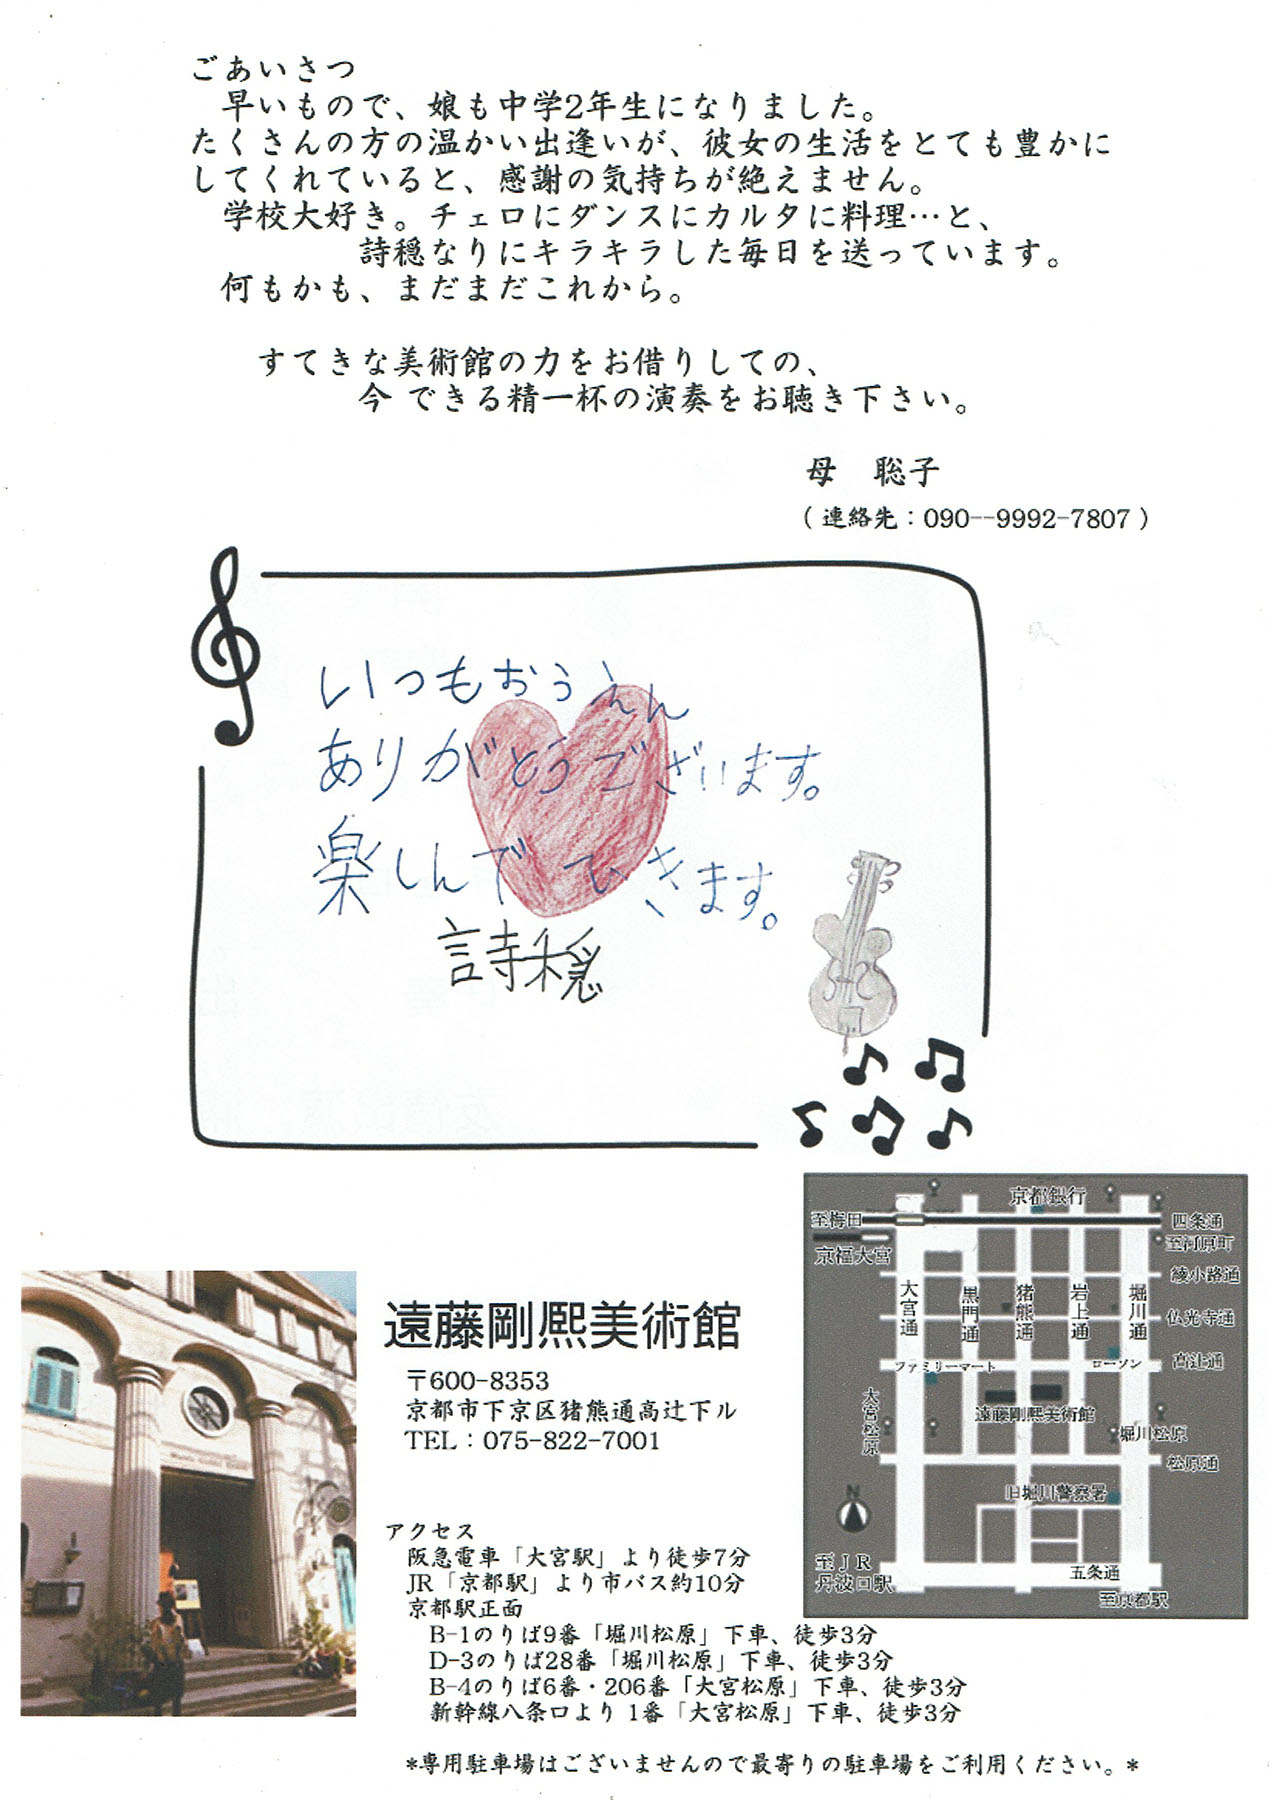 ごあいさつ
早いもので、娘も中学2年生になりました。
たくさんの方の温かい出逢いが、彼女の生活をとても豊かに
してくれていると、感謝の気持ちが絶えません。
学校大好き。チェロにダンスにカルタに料理…と、
詩穏なりにキラキラした毎日を送っています。
何もかも、まだまだこれから。
すてきな美術館の力をお借りしての、
今 できる精一杯の演奏をお聴き下さい。
母　聡子
（ 連絡先：090--9992-7807 ）
いつもおうえん
ありがとうございます。
楽しんでいきます。
詩穏
京都銀行
至梅田
四条通
至河原町
京福大宮
綾小路通
大宮通
黒門通
猪熊通
岩上通
堀川通
仏光寺通
高辻通
ファミリーマート
ローソン
大宮松原
遠藤剛熈美術館
堀川松原
松原通
旧堀川警察署
N
至JR
丹波口駅
五条通
至京都駅
遠藤剛熈美術館
〒600-8353
京都市下京区猪熊通高辻下ル
TEL：075-822-7001
アクセス
阪急電車「大宮駅」より徒歩7分
JR「京都駅」より市バス約10分
京都駅正面
B-1のりば9番「堀川松原」下車、徒歩3分
D-3のりば28番「堀川松原」下車、徒歩3分
B-4のりば6番・206番「大宮松原」下車、徒歩3分
新幹線八条口より 1番「大宮松原」下車、徒歩3分
*専用駐車場はございませんので最寄りの駐車場をご利用ください。*